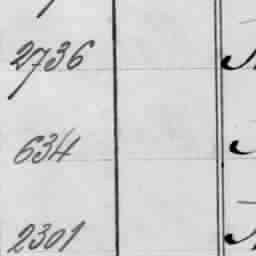 2736
634
2301